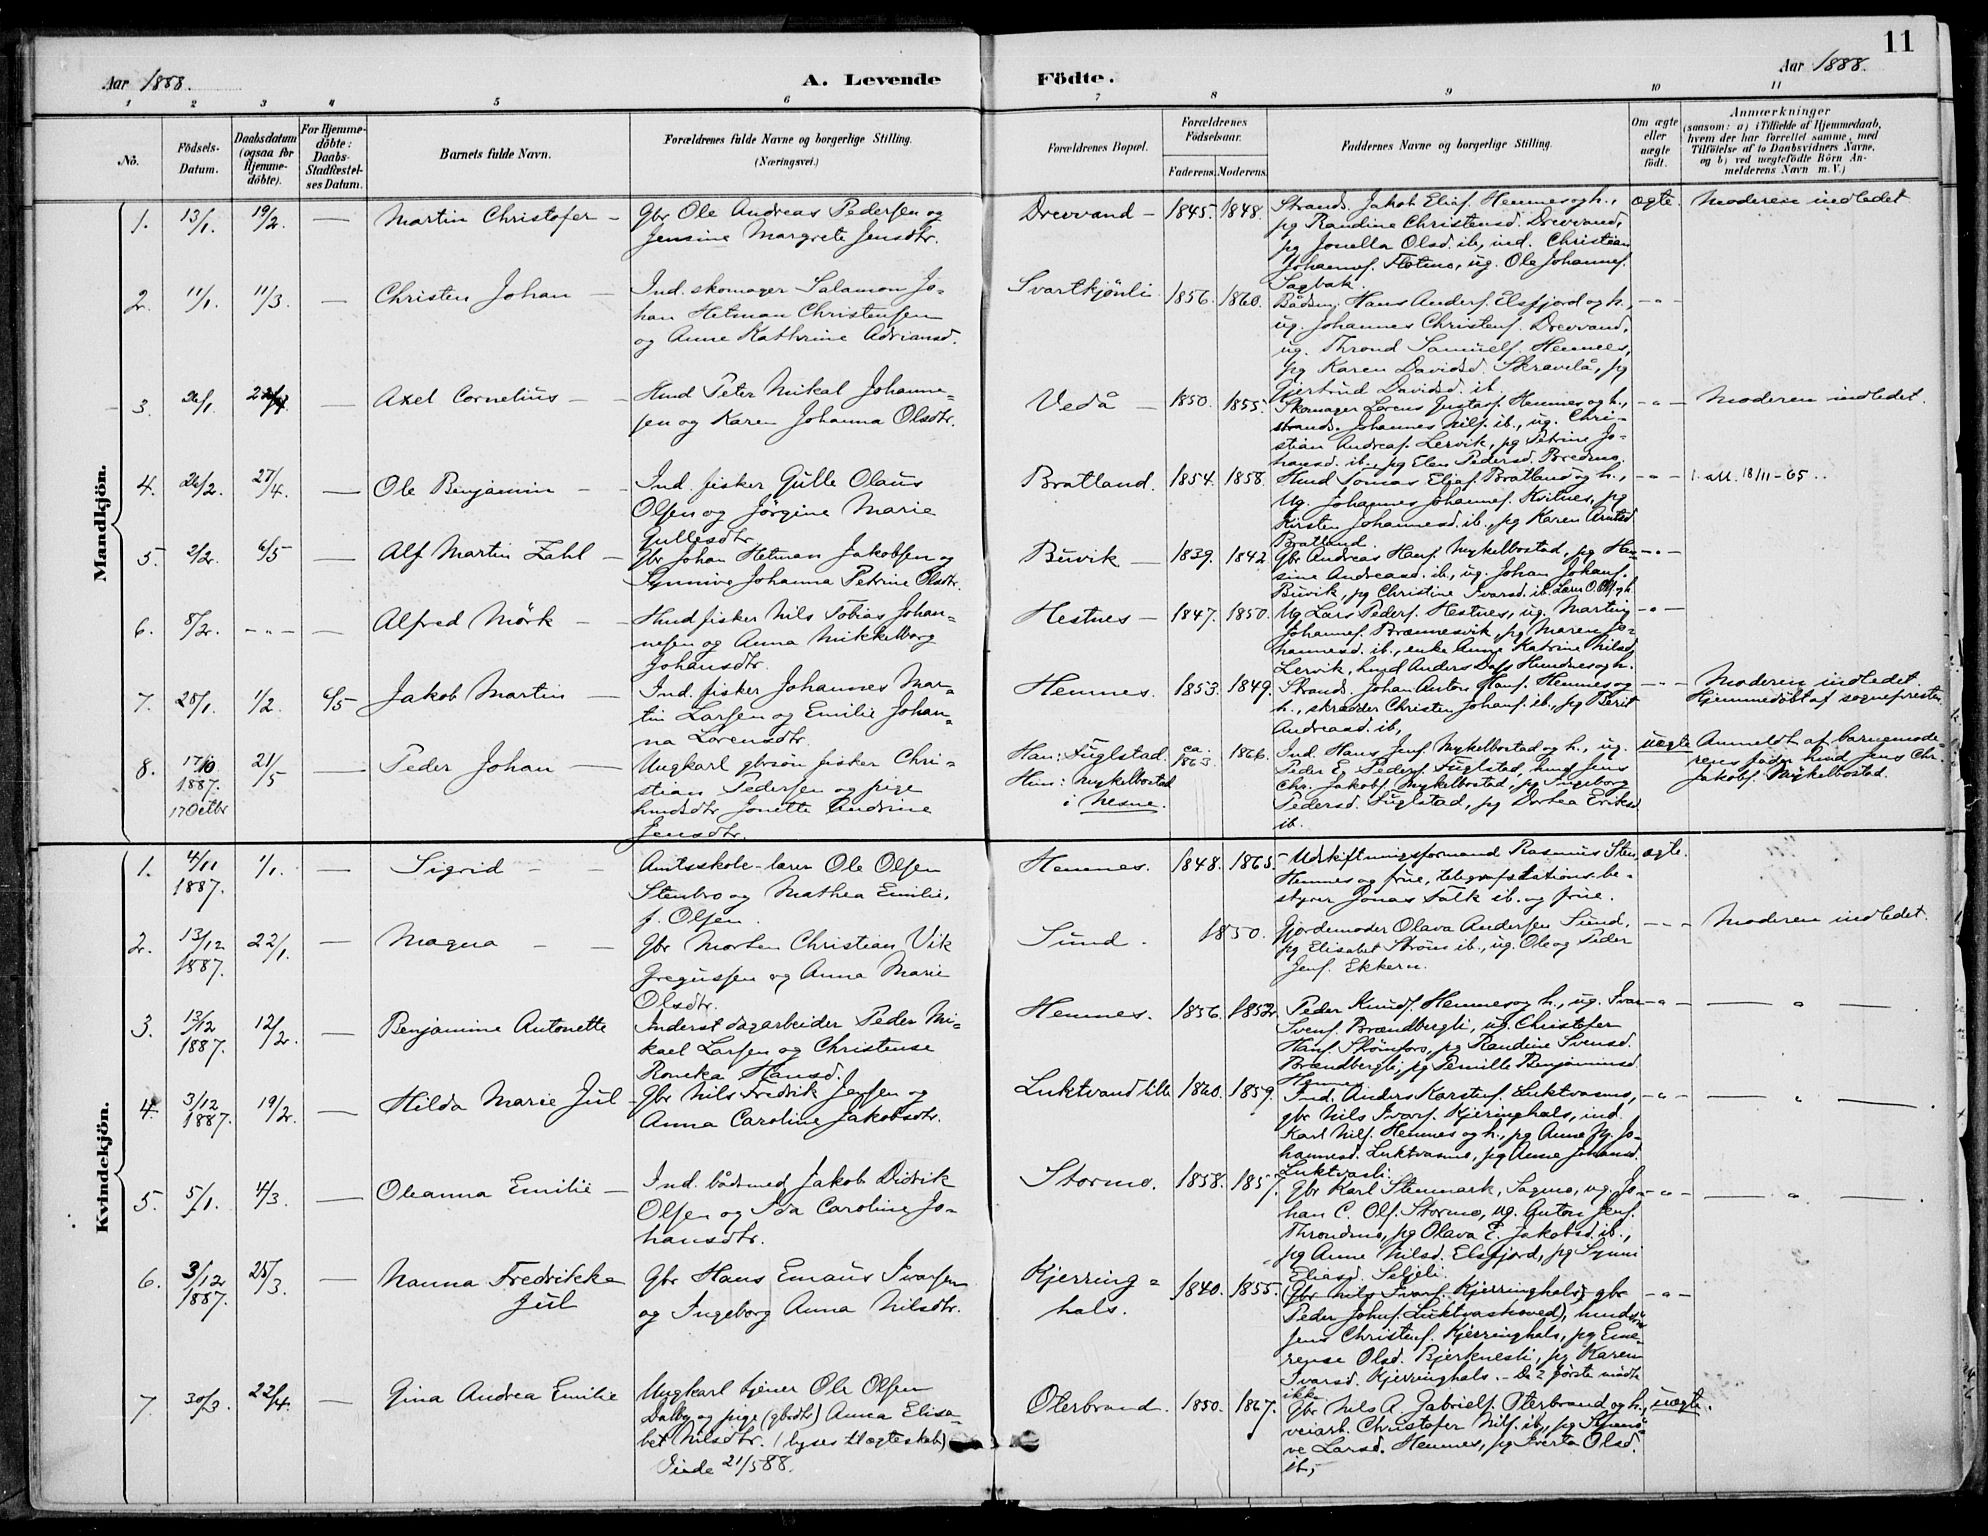 11
Aar 1888.
A. Levende Födte.
Aar 1888.
1 2 3 4 5 6 7 8 9 10 11
No.
Födsels-Datum.
Daabsdatum (ogsaa for Hjemme-döbte).
For Hjemme-döbte: Daabs-Stadfæstel-ses Datum.
Barnets fulde Navn.
Forældrenes fulde Navne og borgerlige Stilling.
(Næringsvei.)
Forældrenes Bopæl.
Forældrenes Födselsaar.
Faderens. Moderens.
Faddernes Navne og borgerlige Stilling.
Om ægte eller uægte födt.
Anmærkninger
(saasom: a) i Tilfælde af Hjemmedaab,
hvem der har forrettet samme, med
Tilföielse af to Daabsvidners Navne,
og b) ved uægtefödte Börn An-
melderens Navn m. V.)
Mandkjön.
1. 13/1. 19/2. — Martin Christofer —
Gbr Ole Andreas Pedersen og
Jensine Margrete Jensdtr.
Drevvand — 1845. 1848.
Strands. Jakob Eliaf. Hemnes og h.,
pg Randine Christensd. Drevvand,
pg Jonella Olsd. ib, ind. Christian
Johannesf. Flatmo, ug. Ole Johannesf.
Sagbak.
ægte. Moderen indledet
2. 11/1. 11/3. — Christen Johan —
Ind. skomager Salamon Jo-
han Hetman Christensen
og Anne Kathrine Adriansd.
Svartkjönli 1856. 1860.
Bådsm. Hans Andersf. Elsfjord og h.,
ug. Johannes Christenf. Drevvand,
ug. Thrond Samuelf. Hemnes,
pg Karen Davidsd. Skravlå, pg
Gjertrud Davidsd. ib.
— „ —
3. 26/1. — Axel Cornelius —
Hmd Peter Mikal Johanne-
sen og Karen Johanna Olsdtr.
Vedå — 1850. 1855.
Skomager Lorens Gustaf. Hemnes og h.,
strands. Johannes Nilf. ib., ug. Chri-
stian Andreaf. Lervik, pg Petrine Jo-
hansd. ib., pg Elen Pedersd. Bredmo.
— „ — Moderen indledet.
4. 26/2. 27/4. — Ole Benjamin —
Ind. fisker Gulle Olaus
Olsen og Jørgine Marie
Gullesdtr
Bratland. 1854. 1858.
Hmd Tomas Eliaf. Bratland og h.,
Ug. Johannes Johannef. Kvitnes, pg
Kirsten Johannesd. ib., pg Karen Arntsd
Bratland.
— „ — 1. att. 18/11-65.
5. 2/2. 6/5 — Alf Martin Zahl —
Gbr Johan Hetman Jakobsen og
Synnive Johanna Petrine Olsdtr.
Buvik — 1839. 1842
Gbr Andreas Hanf. Mykelbostad, pg Han-
sine Andreasd. ib., ug. Johan Johanf.
Buvik, pg Christine Ivarsd. ib. Lars O. Olf. og h.
— „ —
6. 8/2. — „ — — Alfred Mörk —
Hmd fisker Nils Tobias Johan-
nesen og Anna Mikkelborg
Johansdtr.
Hestnes — 1847. 1850.
Ug Lars Pederf. Hestnes, ug. Martin
Johannef. Brænnesvik, pg Maren Jo-
hannesd. ib., enke Anne Katrine Nilsd
Lervik, hmd Anders Dass Hundnes og h.
— „ —
7. 28/1. 1/2. 6/5 Jakob Martin —
Ind. fisker Johannes Mar-
tin Larsen og Emilie Johan-
na Lorensdtr.
Hemnes. 1853. 1849.
Strands. Johan Anton Hanf. Hemnes og
h., skrædder Christen Johanf. ib., pg Berit
Andreasd. ib,
— „ — Moderen indledet.
Hjemmedöbt af sognepresten.
8. 17/10 1887. 17 Octbr 21/5 — Peder Johan —
Ungkarl gbrsön fisker Chri-
stian Pedersen og pige
hmdsdtr Jonette Andrine
Jensdtr.
Han: Fuglstad.
Hun: Mykelbostad
i Nesne.
ca. 1863. 1866.
Ind. Hans Jenf. Mykelbostad og h., ug.
Peder E. Pederf. Fuglstad, hmd Jens
Chr. Jakobf. Mykelbostad, pg Ingeborg
Pedersd. Fuglstad, pg Dorthea Eriksd
ib.
uægte Anmeldt af barnemode-
rens fader hmd Jens Chr.
Jakobf. Mykelbostad.
Kvindekjön.
1. 4/11 1887. 1/1. — Sigrid —
Amtsskole-lærer Ole Olsen
Stenbro og Mathea Emilie,
f. Olsen.
Hemnes. 1848. 1865.
Udskiftningsformand Rasmus Sten,
Hemnes og frue, telegrafstations be-
styrer Jonas Falk ib. og frue.
ægte.
2. 13/12 1887. 22/1. — Magna —
Gbr Morten Christian Vik
Gregussen og Anna Marie
Olsdtr.
Sund. 1850.
Gjordemoder Olava Andersen Sund,
pg Elisabet Ström ib., ug. Ole og Peder
Jenf. Ekkern.
— „ — Moderen indledet.
3. 13/12 1887. 12/2. — Benjamine Antonette
Inderst dagarbeider Peder Mi-
kael Larsen og Christense
Roneka Hansd.
Hemnes. 1856. 1852.
Peder Knudf. Hemnes og h., ug. Ivar
Svenf. Brændbergli, ug. Christofer
Hanf. Strömfors, pg Randine Svensd.
Brændbergli, pg Pernille Benjaminsd.
— „ — — „ —
4. 3/12 1887. 19/2. — Hilda Marie Jul —
Gbr Nils Fredrik Jensen og
Anna Caroline Jakobsdtr.
Luktvand lille 1860. 1859.
Ind. Anders Karstenf. Luktvasmo,
gbr Nils Ivarf. Kjeringhals, ind.
Karl Nilf. Hemnes og h., pg Anne M. Jo-
hannesd. Luktvasmo, pg Anne Johansd
Luktvasli.
— „ — — „ —
5. 5/1. 4/3. — Oleanna Emilie —
Ind. bådsmed Jakob Didrik
Olsen og Ida Caroline Jo-
hansdtr.
Stormo. 1858. 1857.
Gbr Karl Stenmark, Sagmo, ug. Jo-
han C. Olf. Stormo, ug. Anton Jenf.
Throndmo, pg Olava E. Jakobsd. ib.,
pg Anne Nilsd. Elsfjord, pg Synni
Eliasd. Seljeli.
— „ — — „ —
6. 3/12 1887. 28/3. — Nanna Fredrikke
Jul
Gbr Hans Emaus Ivarsen
og Ingeborg Anna Nilsdtr.
Kjerring-
hals. 1840. 1855.
(Gbr Nils Ivarf. Kjerringhals) gbr
Peder Johnf. Luktvashoved), hmds
Jens Christenf. Kjerringhals, pg Eme-
rense Olsd. Bjerknesli, pg Karen
Ivarsd. Kjerringhals. — De 2 förste mödte
ikke
— „ —
7. 30/3. 22/4. — Gina Andrea Emilie
Ungkarl tjener Ole Olsen
Dalby og pige (gbrdtr) Anna Elisa-
bet Nilsdtr. (lyses til ægteskab)
Viede 21/5 88.
Oterbrand. 1850. 1867.
Gbr Nils A. Gabrielf. Oterbrand og h.,
veiarb. Christofer Nilf. ib., pg Synnö-
ve Larsd. Hemnes, pg Iverta Olsd.
ib,
uægte.